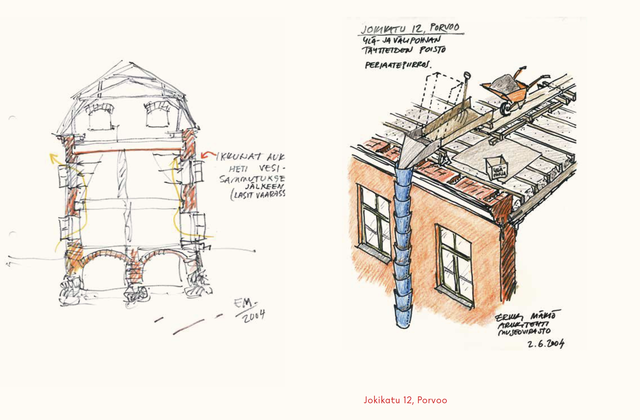 IKKUNAT AUK
HETI VESI-
SAMMUTUKSE
JÄLKEEN
(LASIT VAARASS
E.M.-
2004
JOKIKATU 12, PORVOO
YLÄ- JA VÄLIPOHJAN
TÄYTTEIDEN POISTO
PERIAATEPIIRROS.
ARKKITEHTI
MUSEOVIRASTO
2.6.2004
Jokikatu 12, Porvoo